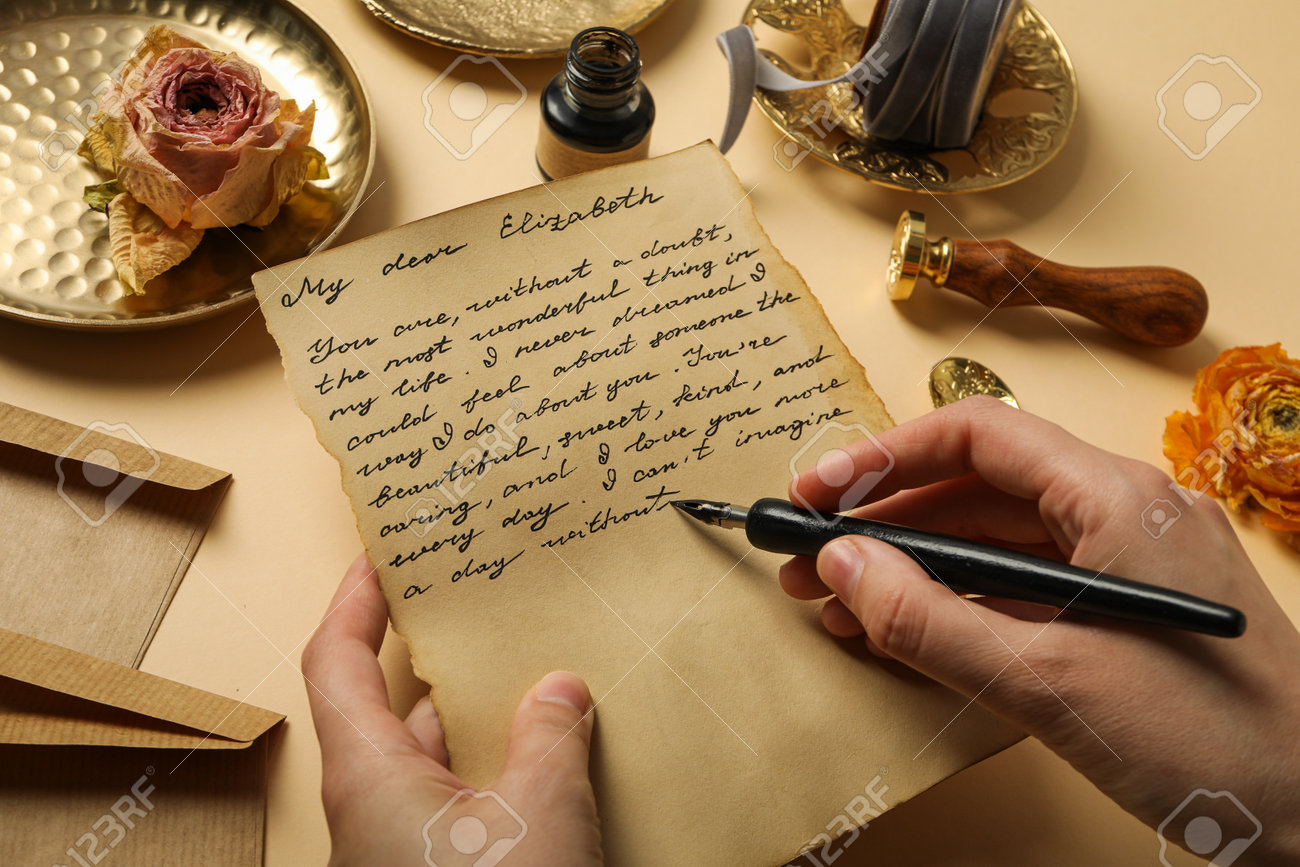 My dear Elizabeth
You are, without a doubt,
the most wonderful thing in
my life. I never dreamed I
could feel about someone the
way I do about you. You're
beautiful, sweet, kind, and
caring, and I love you more
every day. I can't imagine
a day without
123RF
123RF
123RF
123RF
123RF
123RF
123RF
123RF